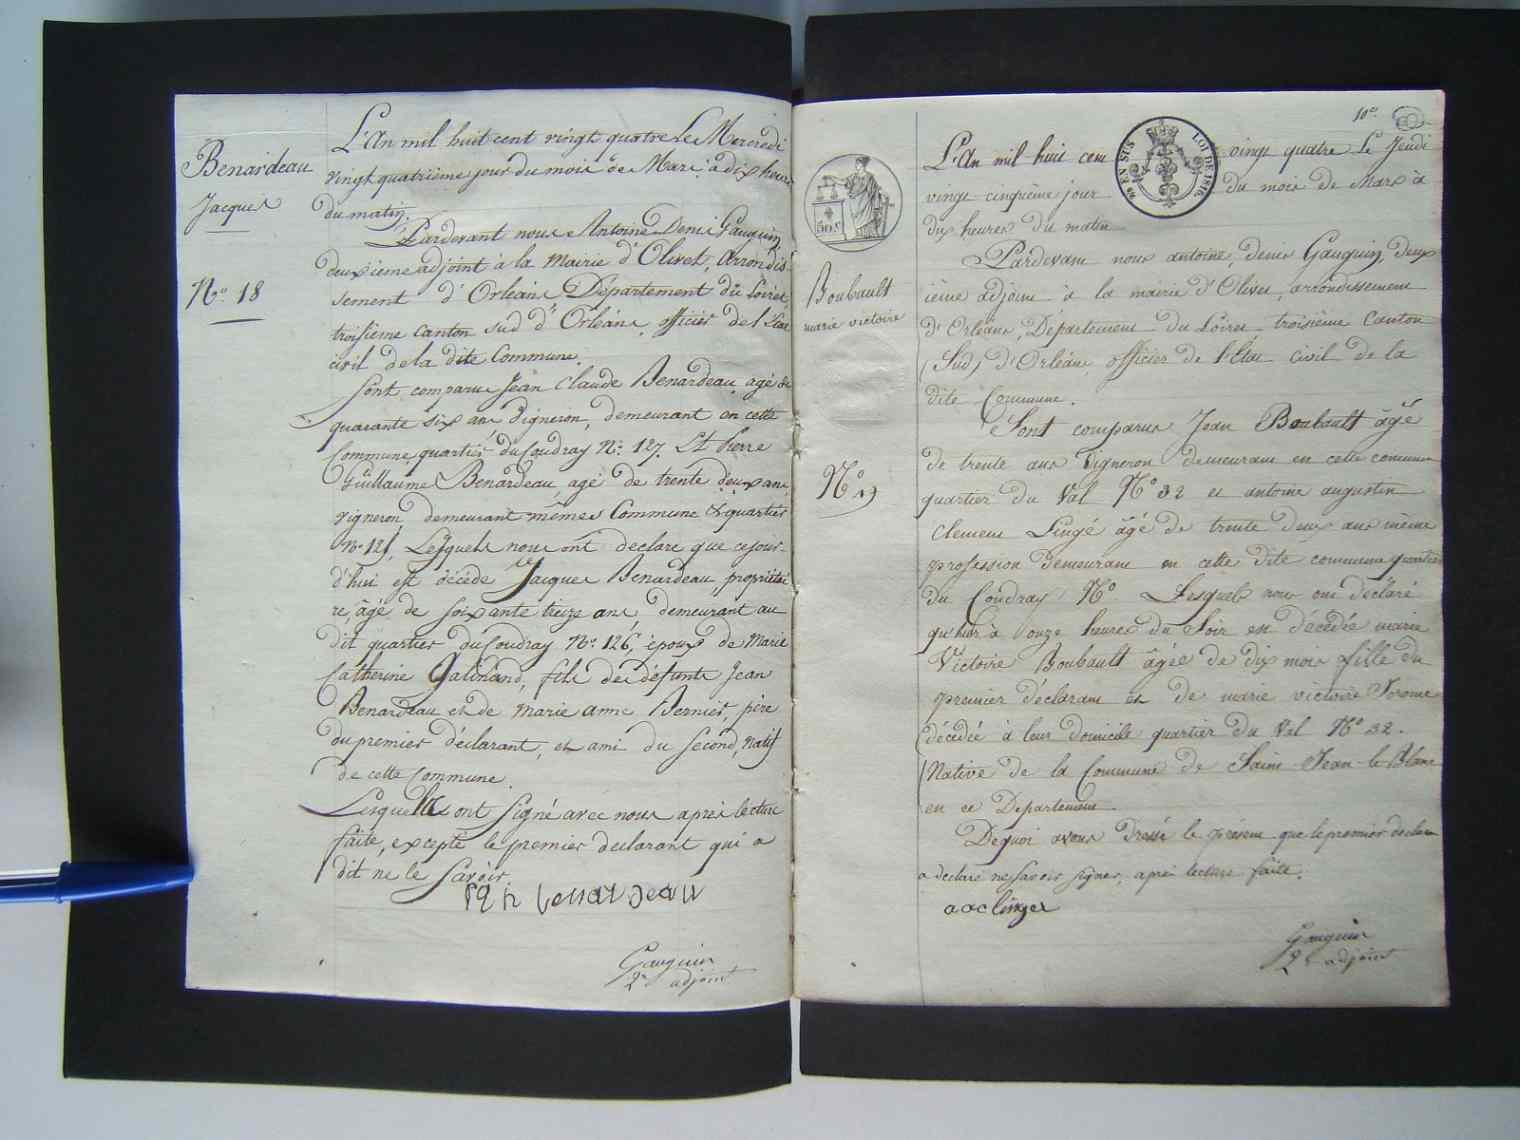 Benardeau
Jacques
N.o 18
L'An mil huit cent vingt quatre Le Mercredi
vingt quatrième jour du mois de Mars à dix heures
du matin.
Pardevant nous Antoine Denis Gauguin,
deuxième adjoint à la Mairie d'Olivet, Arrondis-
sement d'Orleans Département du Loiret,
troisième Canton sud d'Orléans, officier de l'Etat
civil de la dite Commune.
Sont comparus Jean Claude Benardeau, agé de
quarante six ans vigneron, demeurant en cette
Commune, quartier du Coudray N.o 127. Et Pierre
Guillaume Benardeau, agé de trente deux ans,
vigneron, demeurant même Commune & quartier
N.o 121, Lesquels nous ont declaré que cejour-
d'hui est décédé Jacques Benardeau, propriétai
re, âgé de soixante treize ans, demeurant au
dit quartier du Coudray N.o 126, époux de Marie
Catherine Galinand, fils des défunts Jean
Benardeau et de Marie anne Bernier, père
du premier déclarant, et ami du second, natif
de cette Commune.
Lesquels ont signé avec nous après lecture
faite, excepté le premier declarant qui a
dit ne le savoir.
Gauguin
2e adjoint
10e
50 EN SUS
LOI DE 1816.
50 c
Boubault
marie victoire
N.o 19
L'An mil huit cent vingt quatre Le Jeudi
vingt cinquième jour du mois de Mars à
dix heures du matin
Pardevant nous antoine, denis Gauguin, deux
ième adjoint à la mairie d'Olivet, arrondissement
d'Orléans, Département du Loiret troisième Canton
(Sud) d'Orléans officier de l'Etat civil de la
dite Commune.
Sont comparus Jean Boubault âgé
de trente ans vigneron demeurant en cette commune
quartier du Val N.o 32 et antoine augustin
Clement Lingé âgé de trente deux ans même
profession demeurant en cette dite commune quartier
du Coudray N.o Lesquels nous ont déclaré
qu'hier à onze heures du Soir est décédée marie
Victoire Boubault âgée de dix mois fille du
premier déclarant et de marie victoire
décédée à leur domicile quartier du Val N.o 32.
Native de la Commune de Saint Jean-le-Blanc
en ce Departement.
Dequoi avons dressé le présent que le premier declarant
a declaré ne savoir signer, après lecture faite.
a a c linger
Gauguin
2e adjoint